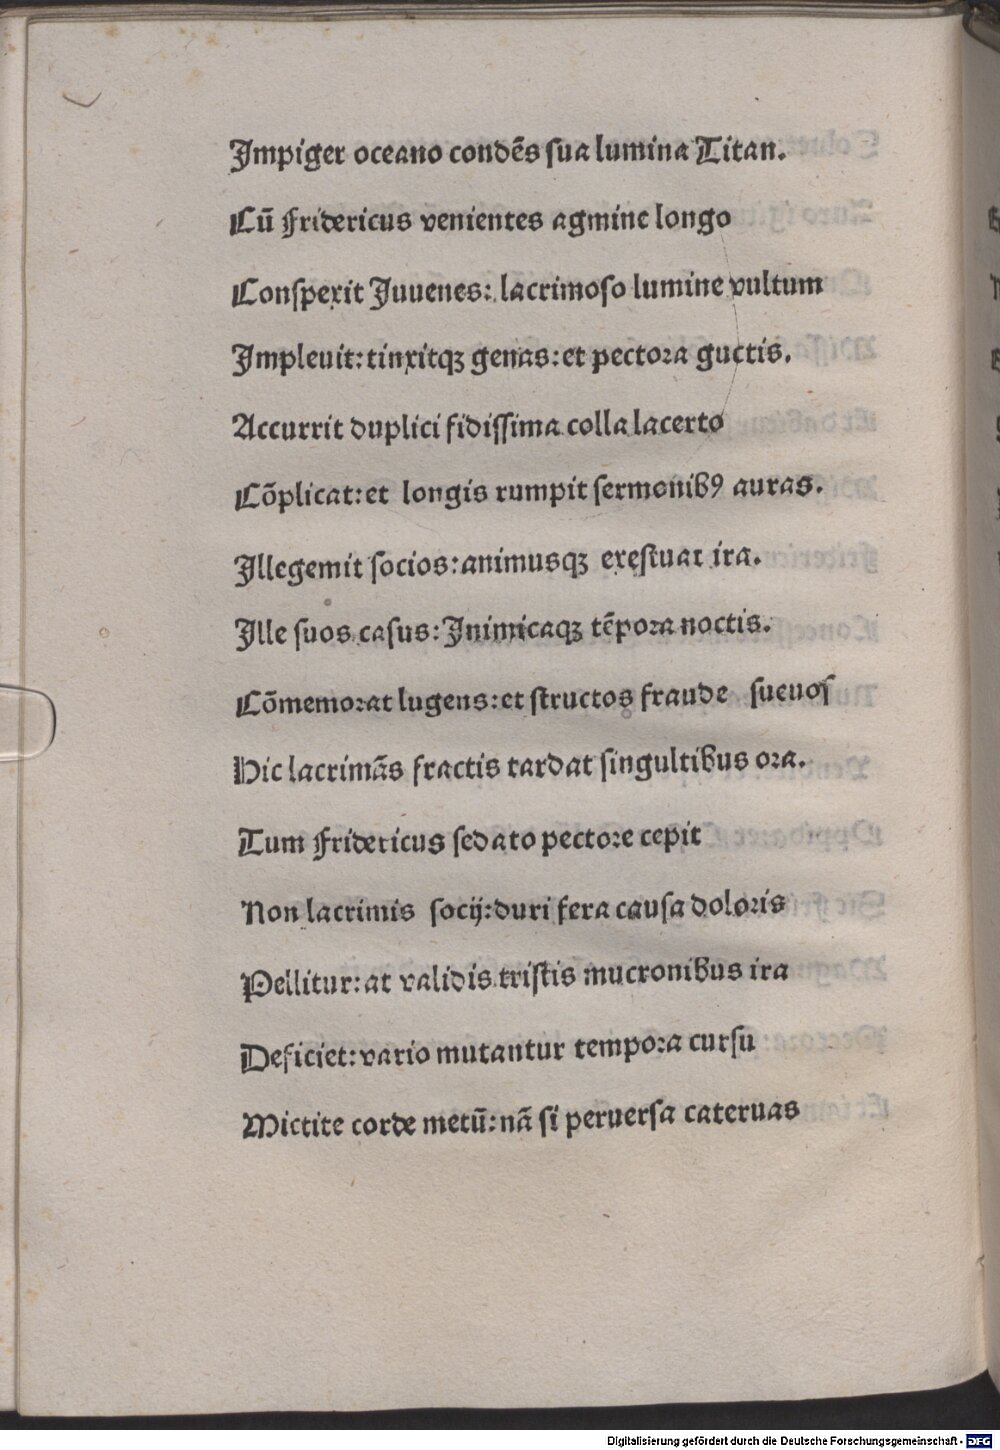 Impiger oceano condēs sua lumina Titan.
Cū fridericus venientes agmine longo
Conspexit Juuenes: lacrimoso lumine vultum
Impleuit: tinxitqꝫ genas: et pectora guctis.
Accurrit duplici fidissima colla lacerto
Cōplicat: et longis rumpit sermonibꝰ auras.
Illegemit socios: animusqꝫ exęstuat ira.
Ille suos casus: Inimicaqꝫ tēpora noctis.
Cōmemorat lugens: et structos fraude sueuos
Hic lacrimās fractis tardat singultibus ora.
Tum fridericus sedato pectore cepit
Non lacrimis socij: duri fera causa doloris
Pellitur: at validis tristis mucronibus ira
Deficiet: vario mutantur tempora cursu
Mictite corde metū: nā si peruersa cateruas
Digitalisierung gefördert durch die Deutsche Forschungsgemeinschaft - DFG